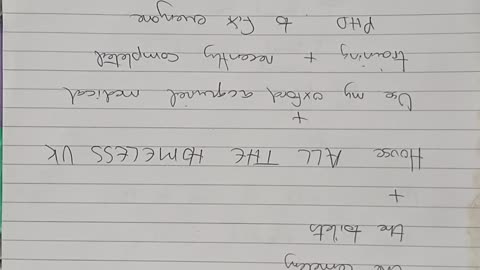 the cemetery
the toilets
+
House ALL THE HOMELESS UK
+
Use my oxford acquired medical
training + recently completed
PHD to fix everyone